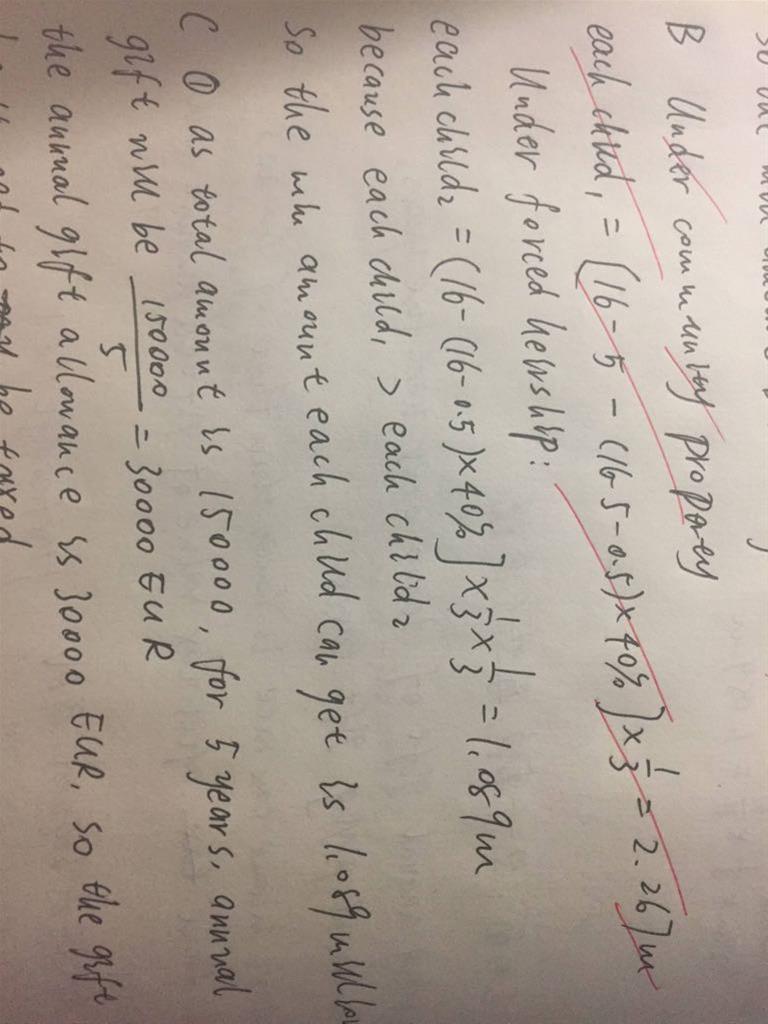 B Under community property
each child₁ = [16 - 5 - (16-5-0.5) × 40%] × 1/3 = 2.267m
Under forced heirship:
each child₂ = (16 - (16-0.5) × 40%] × 1/3 × 1/3 = 1.089m
because each child₁ > each child₂
So the min amount each child can get is 1.089 million
C ① as total amount is 150000, for 5 years, annual
gift will be 150000/5 = 30000 EUR
the annual gift allowance is 30000 EUR, so the gift
be taxed